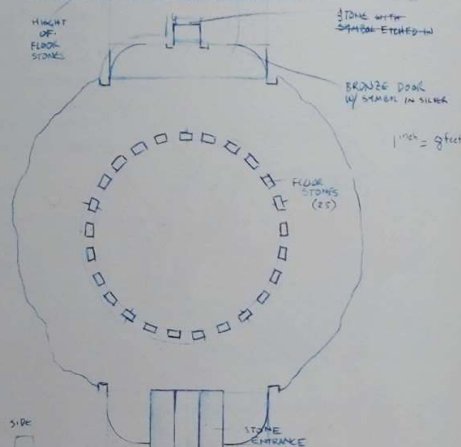 HIEGHT
OF
FLOOR
STONES
STONE WITH
SYMBOL ETCHED IN
BRONZE DOOR
W/ SYMBOL IN SILVER
1 inch = 8 feet
FLOOR
STONES
(25)
SIDE
STONE
ENTRANCE